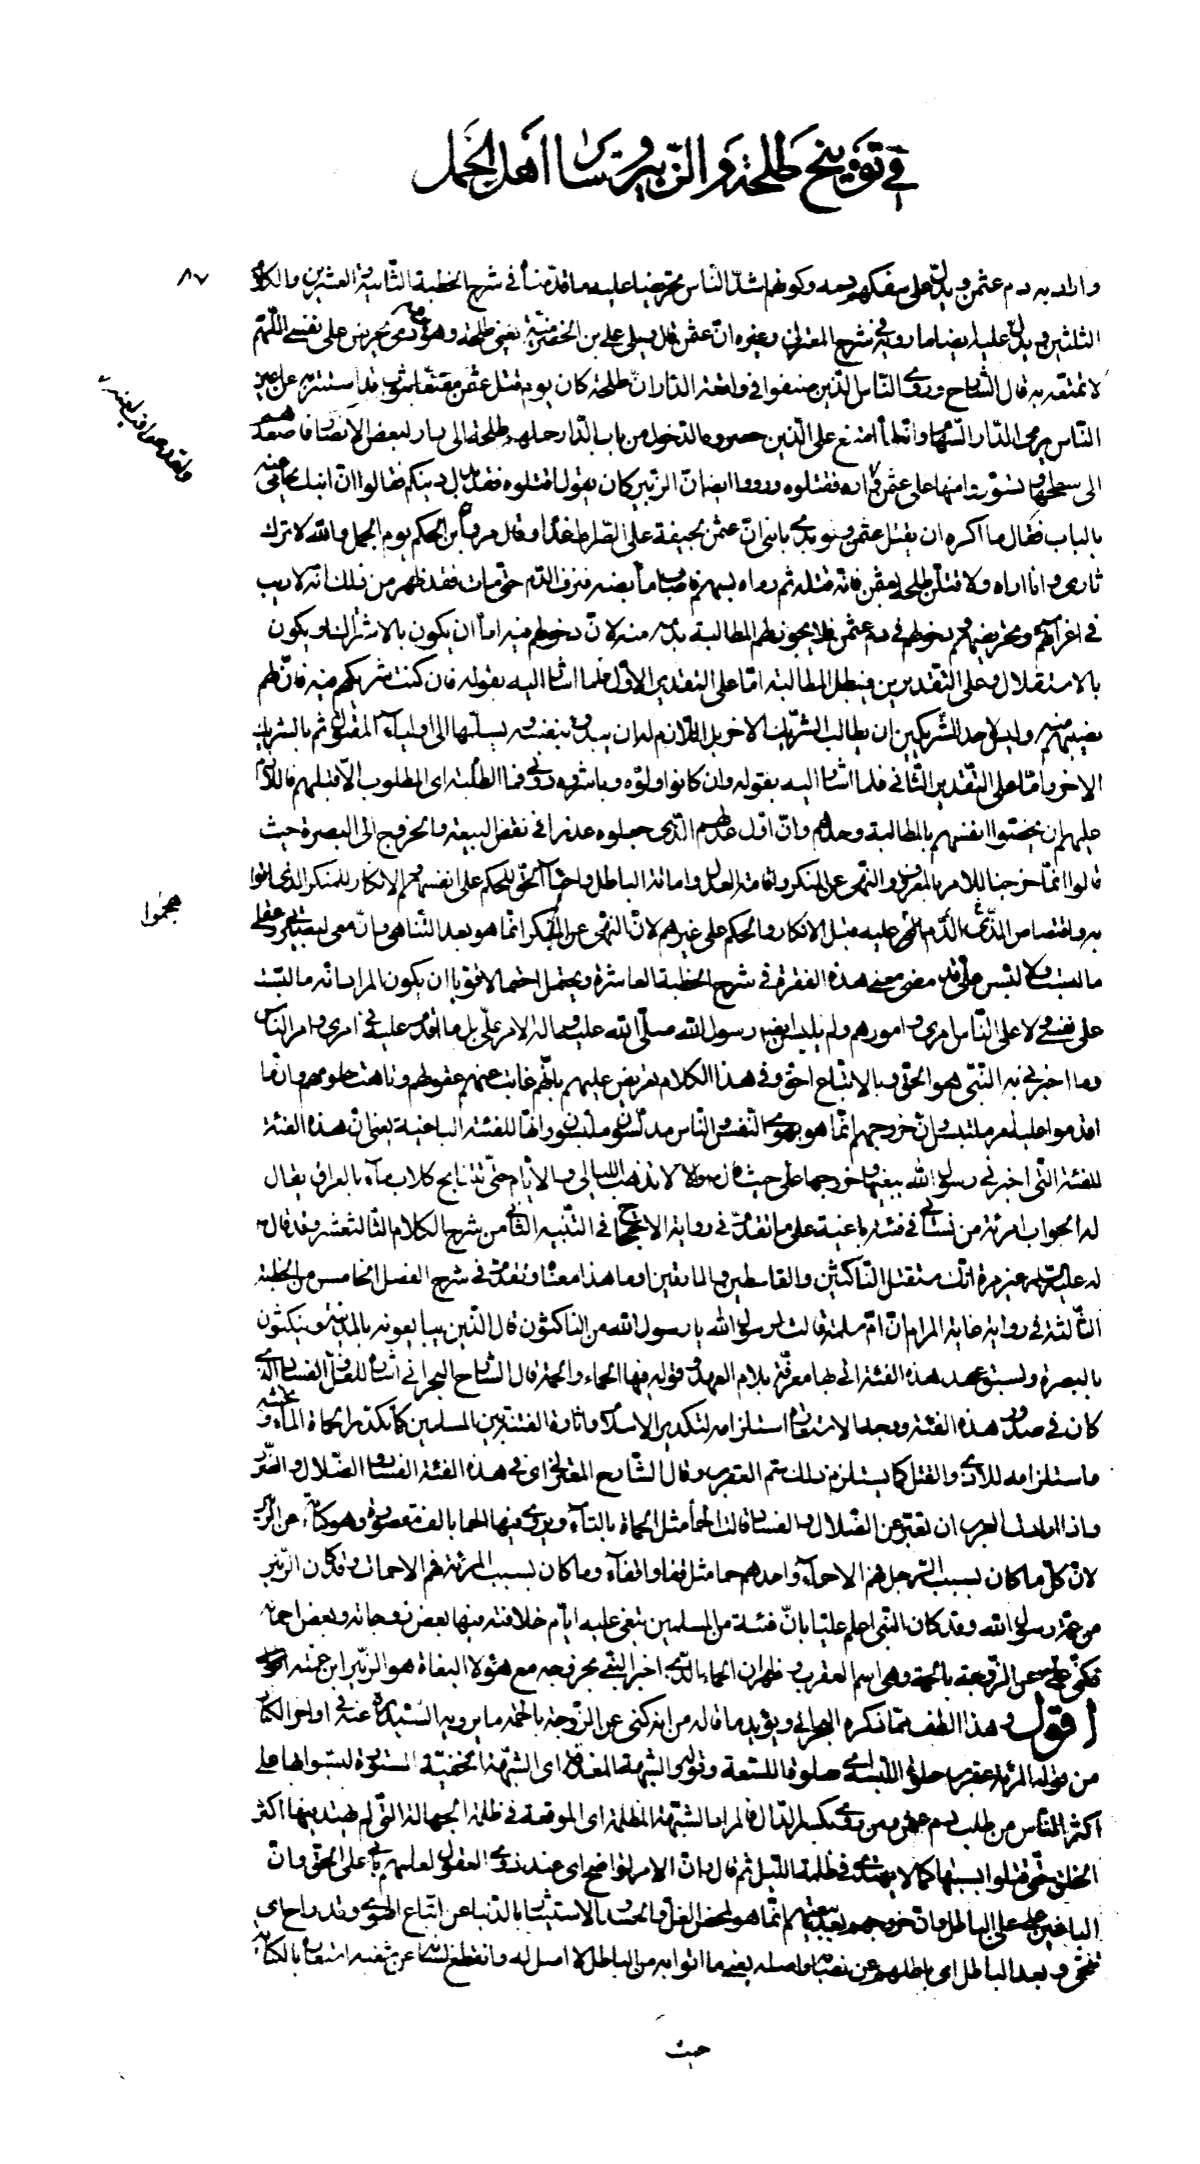 في توبيخ طلحة والزبير وسائر أهل الجمل
٨٧
واراد به دم عثمن ويدل على سفكهم دمه وكونهم اشد الناس تحريضا عليه ما قدمناه في شرح الخطبة الثانية والعشرين والكلام
الثلثين ويدل عليه ايضا ما رويه في شرح المعتزلي وغيره ان عثمن قال ويلي على ابن الحضرمية يعنى طلحة وهو يحرض على نفسى اللهم
لا تمتعه به قال الشارح وروى الناس الذين صنفوا في واقعة الدار ان طلحة كان يوم قتل عثمن مقنعا بثوب قد استتر به عن اعين
الناس يرمى الدار السهام وانه لما امتنع على الذين حصروه الدخول من باب الدار حملهم طلحة الى دار لبعض الانصار فاصعدهم
الى سطحها وتسوروا منها على عثمن داره فقتلوه ورووا ايضا ان الزبير كان يقول اقتلوه فقد بدل دينكم فقالوا ان ابنك يحامى عنه
بالباب فقال ما اكره ان يقتل عثمن ولو بدء بابنى ان عثمن لجيفة على الصراط غدا وقال مروان بن الحكم يوم الجمل والله لا اترك
ثارى وانا اراه ولاقتلن طلحة بعثمن فانه قتله ثم رماه بسهم فاصاب مأبضه فنزف الدم حتى مات فقد ظهر من ذلك انه لا ريب
في اغرائهم وتحريضهم ودخولهم في دم عثمن فلا يجوز لهم المطالبة بدمه منه لان دخولهم فيه اما ان يكون بالاشتراك او يكون
بالاستقلال وعلى التقديرين فيبطل المطالبة اما على التقدير الاول فلما اشار اليه بقوله فان كنت شريكهم فيه فان لهم
نصيبهم منه وليس لاحد الشريكين ان يطالب الشريك الاخر بل اللازم له ان يبدء بنفسه ويسلمها الى اولياء المقتول ثم بالشريك
الاخر واما على التقدير الثاني فلما اشار اليه بقوله وان كانوا ولوه وباشروه دوني فما الطلبة اى المطلوب الا قبلهم فاللازم
عليهم ان يخصوا انفسهم بالمطالبة وحدهم وان اول عدلهم الذى جعلوه عذرا في نقض البيعة والخروج الى البصرة حيث
قالوا انما خرجنا للامر بالمعروف والنهى عن المنكر واقامة العدل واماتة الباطل واحياء الحق للحكم على انفسهم والانكار للمنكر الذى اتوا
هجموا
عليه قبل الانكار والحكم على غيرهم لان النهى عن المنكر انما هو بعد التناهى وان معى لبصيرتى
ما لبست ولا لبس على قد مضى معنى هذه الفقرة في شرح الخطبة العاشرة ويحتمل احتمالا قويا ان يكون المراد انه ما لبست
على نفسى ولا على الناس امرى وامورهم ولم يلبس ايضا رسول الله صلى الله عليه وآله الامر على بل ما اقدم عليه في امرى وامر الناس
وما اخبرني به النبى هو الحق وبالاتباع احق وفي هذا الكلام تعريض عليهم بانهم غابت عنهم عقولهم وتاهت حلومهم وان ما
اقدموا عليه امر ملتبس وان خروجهم انما هو بهوى النفس والناس مدلسون وملبسون وانها للفئة الباغية يعنى ان هذه الفئة
للفئة التى اخبرنى رسول الله ببغيها وخروجها على حيث قال لا تذهب الليالى والايام حتى تتنابح كلاب ماء بالعراق يقال
له الحوأب امرئة من نسائى في فئة باغية على ما تقدم في رواية الاحتجاج في التنبيه الثاني من شرح الكلام الثالث عشر وقد قال
له عليه السلام غير مرة انك ستقتل الناكثين والقاسطين والمارقين او ما هذا معناه وتقدم في شرح الفصل الخامس من الخطبة
الثالثة في رواية غاية المرام ان ام سلمة قالت لرسول الله يا رسول الله من الناكثون قال الذين يبايعونه بالمدينة وينكثون
بالبصرة ولسبق عهد هذه الفئة اتى بها معرفة بلام العهد وقوله فيها الحماء والحمة قال الشارح البحراني اشارة للغل والفساد الذى
كان في صدور هذه الفئة ووجه الاستعارة استلزامه لتكدير الاسلام واثارة الفتنة بين المسلمين كما تكدر الحماة الماء و
استلزامه للاذى والقتل كما يستلزم ذلك سم العقرب وقال الشارح المعتزلي اى في هذه الفئة الفساد والضلال والضرر
واذا ارادت العرب ان تعبر عن الضلال والفساد قالت الحمأ مثل الحماة بالتاء ويروى فيها الحما بالف مقصورة وهو كناية عن الزبير
لان كل ما كان بسبب الرجل فهم الاحماء واحدهم حما مثل قفا واقفاء وما كان بسبب المرئة فهم الاحمات وقد كان الزبير
من عمة رسول الله وقد كان النبى اعلم عليا بان فئة من المسلمين تبغى عليه ايام خلافته فيها بعض زوجاته وبعض احمائه
فكنى على عن الزوجة بالحمة وهى اسم العقرب وظهر ان الحماء الذى اخبر النبى بخروجه مع هؤلاء البغاة هو الزبير ابن عمته
اقول وهذا الطف مما ذكره البحراني ويؤيد ما قاله من انه كنى عن الزوجة بالحمة ما يرويه السيد عنه في اواخر الكتاب
من قوله المرئة عقرب حلوة اللبسة اى حلوة اللسعة وقوله والشبهة المغدفة اى الشبهة الخفية المستورة لبسوا بها على
اكثر الناس من طلب دم عثمن ومن روى بكسر الدال فالمراد الشبهة المظلمة اى الموقعة في ظلمة الجهالة التى لم يهتد فيها اكثر
الخلق حتى قتلوا بسببها كما لا يهتدى في ظلمة الليل ثم قال وان الامر لواضح اى عند ذوى العقول لعلمهم بانى على الحق وان
الباغين على الباطل وان خروجهم بعد بيعتهم انما هو لمحض الغل والحسد والاستيثار بالدنيا عن اتباع الهوى وقد زاح اى
تنحى وبعد الباطل اى باطلهم عن نصابه واصله يعنى ما اتوا به من الباطل لا اصل له وانقطع لسانه عن شغبه استعارة بالكناية
حيث